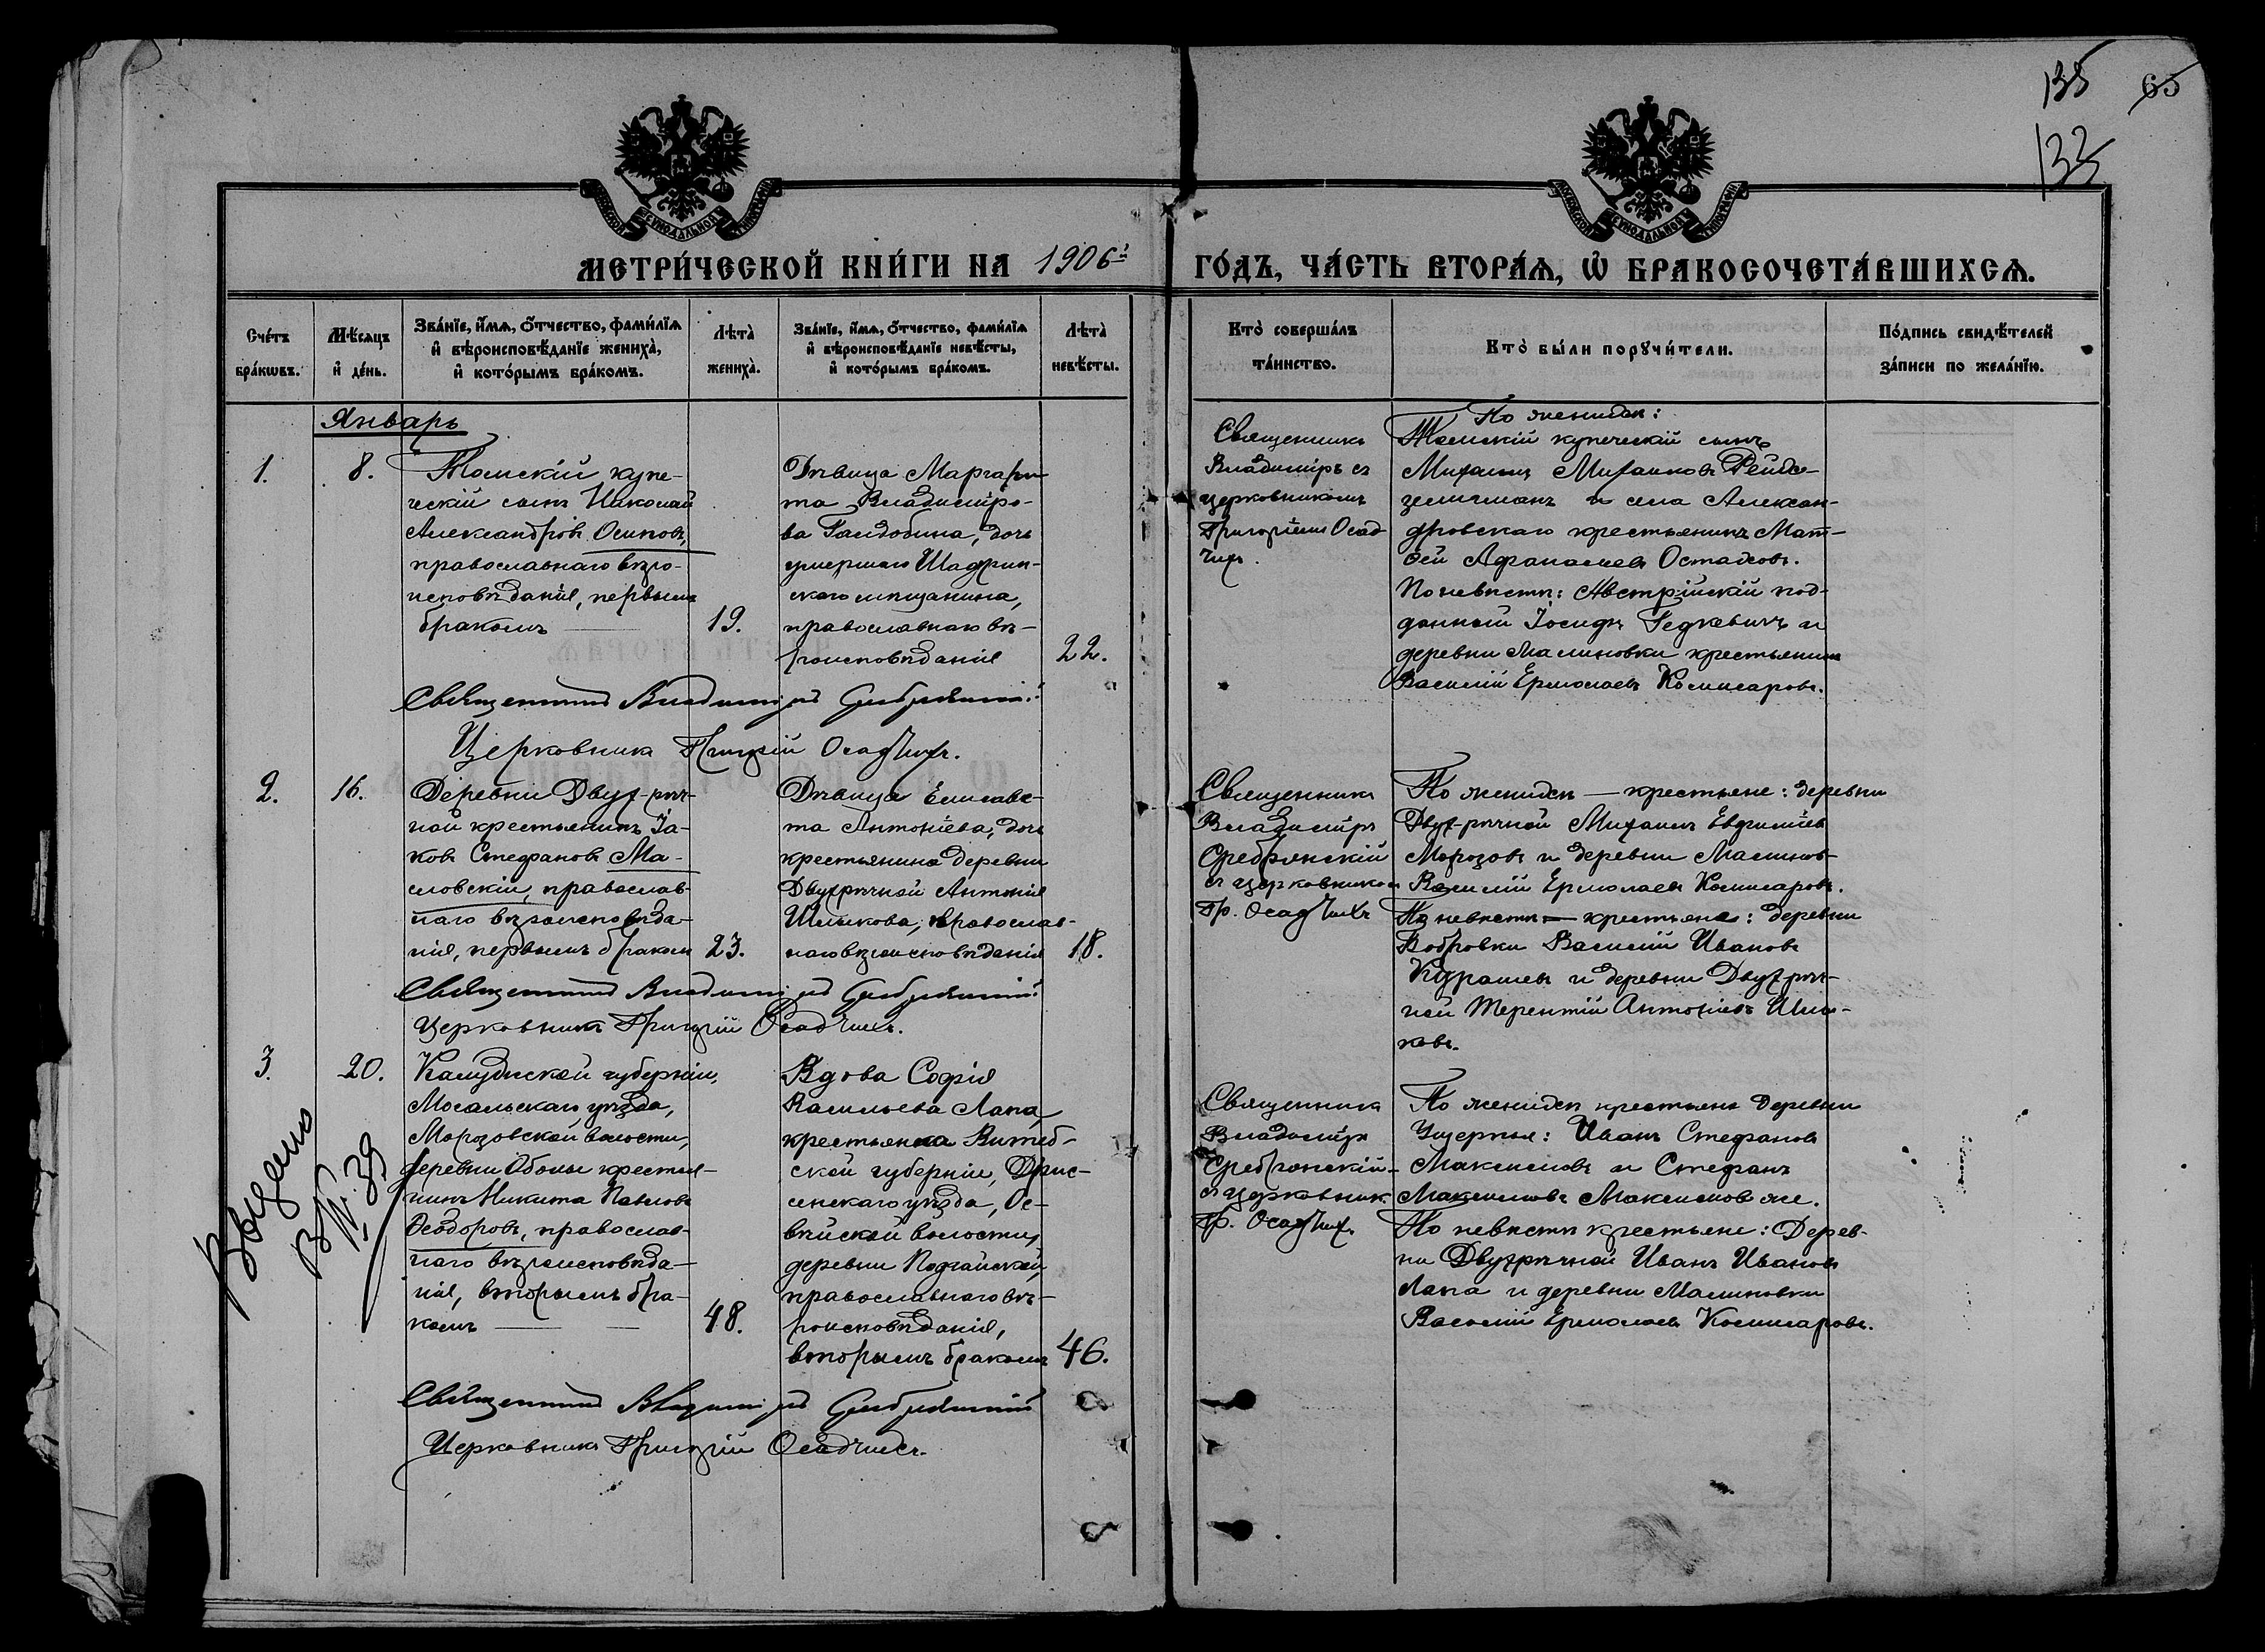 135 65
133
МОСКОВСКОЙ СѴНОДАЛЬНОЙ ТИПОГРАФІИ
МОСКОВСКОЙ СѴНОДАЛЬНОЙ ТИПОГРАФІИ
МЕТРИ́ЧЕСКОЙ КНИ́ГИ НА 1906й ГО́ДЪ, ЧА́СТЬ ВТОРА́Ѧ, Ѡ҆ БРАКОСОЧЕТА́ВШИХСѦ.
Сче́тъ
бра́кѡвъ.
Мѣ́сѧцъ
и҆ де́нь.
Зва́нїе, и҆́мѧ, ѻ҆́тчество, фами́лїѧ
и҆ вѣроисповѣ́данїе жениха̀,
и҆ кото́рымъ бра́комъ.
Лѣта̀
жениха̀.
Зва́нїе, и҆́мѧ, ѻ҆́тчество, фами́лїѧ
и҆ вѣроисповѣ́данїе невѣ́сты,
и҆ кото́рымъ бра́комъ.
Лѣта̀
невѣ́сты.
Кто̀ соверша́лъ
та́инство.
Кто̀ бы́ли порꙋчи́тели.
По́дпись свидѣ́телей
за́писи по жела́нїю.
Январь
1.
8.
Томскій купе-
ческій сынъ Николай
Александровъ Осиповъ,
православнаго вѣро-
исповѣданія, первымъ
бракомъ
19.
Дѣвица Маргари-
та Владимiро-
ва Галдобина, дочь
умершаго Шадрин-
скаго мѣщанина,
православнаго вѣ-
роисповѣданія
22.
Священникъ
Владиміръ съ
церковникомъ
Григоріемъ Осад
Чихъ.
По женихѣ:
Томскій купеческій сынъ
Михаилъ Михаиловъ
и села Алексан-
дровскаго крестьянинъ Мат-
ѳей Аѳанасіевъ Осташовъ.
По невѣстѣ: Австрійскій под-
данный Іосифъ Гедкевичъ и
деревни Малиновки крестьянинъ
Василій Ермолаевъ Комисаровъ.
Священникъ Владиміръ Сребрянскій
Церковникъ Григорій Осадчихъ.
2.
16.
Деревни Двух-рѣч-
ной крестьянинъ Іа-
ковъ Стефановъ Ма-
словскій, православ-
наго вѣроисповѣда-
нія, первымъ бракомъ
23.
Дѣвица Елисаве-
та Антоніева, дочь
крестьянина деревни
Двухрѣчной Антонія
Шишкова, православ-
наго вѣроисповѣданія
18.
Священникъ
Владиміръ
Сребрянскій
съ церковником
Гр. Осадчихъ
По женихѣ — крестьяне: деревни
Двух-рѣчной Михаилъ Евфиміевъ
Морозовъ и деревни Малинов-
Василій Ермолаевъ Комисаровъ.
По невѣстѣ — крестьяне: деревни
Бобровки Василій Ивановъ
и деревни Двухрѣч-
ной Терентій Антоніевъ Шиш-
ковъ.
Священникъ Владиміръ Сребрянскій
Церковникъ Григорій Осадчихъ.
3.
20.
Выдано
В № 39
Калужской губерніи,
Мосальскаго уѣзда,
Морозовской волости,
деревни крестья-
нинъ Никита Павловъ
Ѳеодоровъ, православ-
наго вѣроисповѣда-
нія, вторымъ бра-
комъ
48.
Вдова Софія
Васильева Лапа,
крестьянка Витеб-
ской губерніи, Дрис-
сенскаго уѣзда, Ос-
вѣйской волости,
деревни Подгайской,
православнаго вѣ-
роисповѣданія,
вторымъ бракомъ
46.
Священника
Владиміръ
Сребрянскій
съ церковник.
Гр. Осадчих.
По женихѣ крестьяне деревни
Ущерпья: Иванъ Стефановъ
Максимовъ и Стефанъ
Максимовъ Максимовъ же.
По невѣстѣ крестьяне: Дерев-
ни Двухрѣчной Иванъ Ивановъ
Лапа и деревни Малиновки
Василій Ермолаевъ Комисаровъ.
Священникъ Владиміръ Сребрянскій
Церковникъ Григорій Осадчихъ.